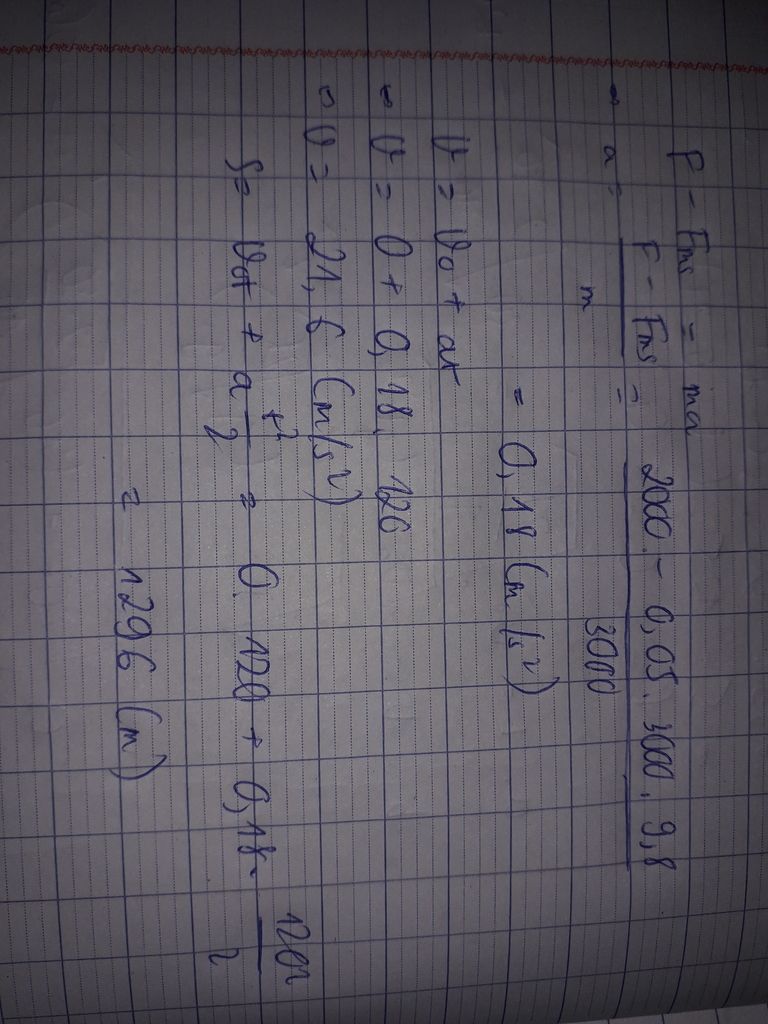 F - Fms = ma
⇒ a = \frac{F - Fms}{m} = \frac{2000 - 0,05. 3000. 9,8}{3000}
= 0,18 (m/s²)
v = v0 + at
⇒ v = 0 + 0,18. 120
⇒ v = 21,6 (m/s²)
S = v0t + a \frac{t²}{2} = 0. 120 + 0,18. \frac{120²}{2}
= 1296 (m)